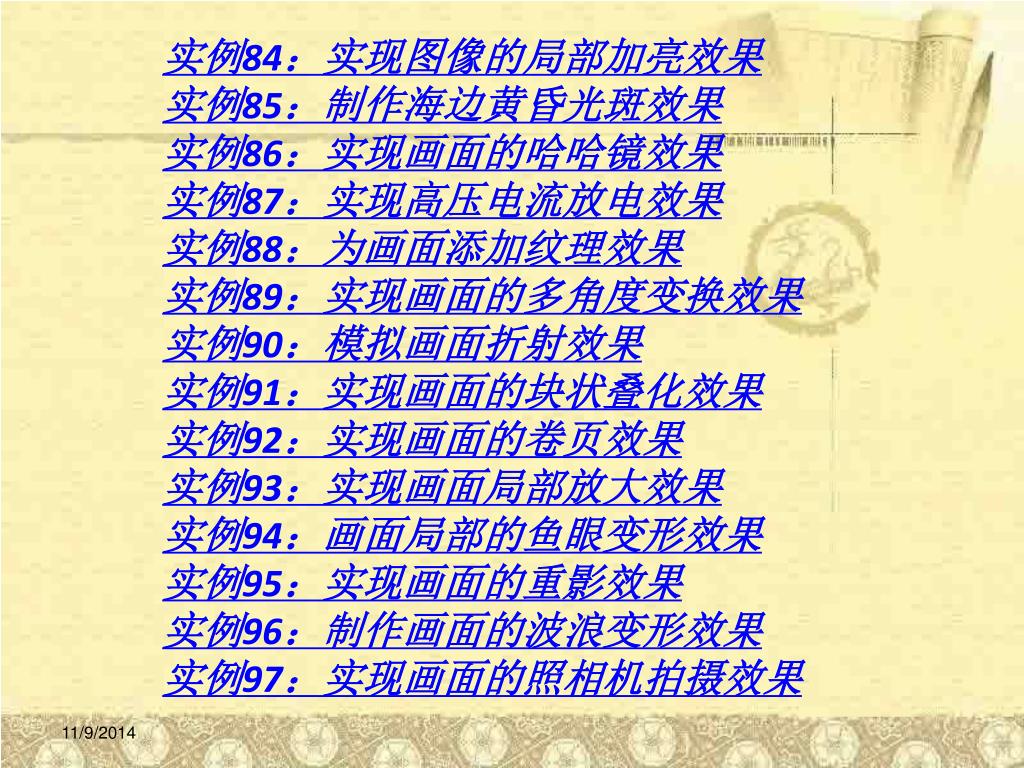 实例84：实现图像的局部加亮效果
实例85：制作海边黄昏光斑效果
实例86：实现画面的哈哈镜效果
实例87：实现高压电流放电效果
实例88：为画面添加纹理效果
实例89：实现画面的多角度变换效果
实例90：模拟画面折射效果
实例91：实现画面的块状叠化效果
实例92：实现画面的卷页效果
实例93：实现画面局部放大效果
实例94：画面局部的鱼眼变形效果
实例95：实现画面的重影效果
实例96：制作画面的波浪变形效果
实例97：实现画面的照相机拍摄效果
11/9/2014